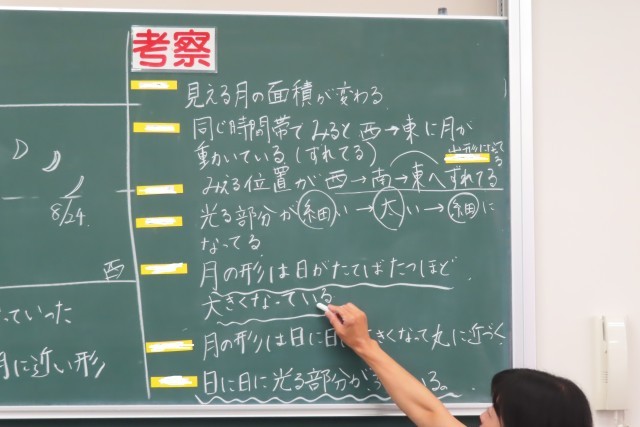 考察
見える月の面積が変わる
同じ時間帯でみると西→東に月が
動いている(ずれてる)
山形になってる
みえる位置が西→南→東へずれてる
光る部分が細い→太い→細に
なってる
月の形は日がたてばたつほど
大きくなっている
月の形は日に日に きくなって丸に近づく
日に日に光る部分が いる。
8/24
西
っていった
月に近い形